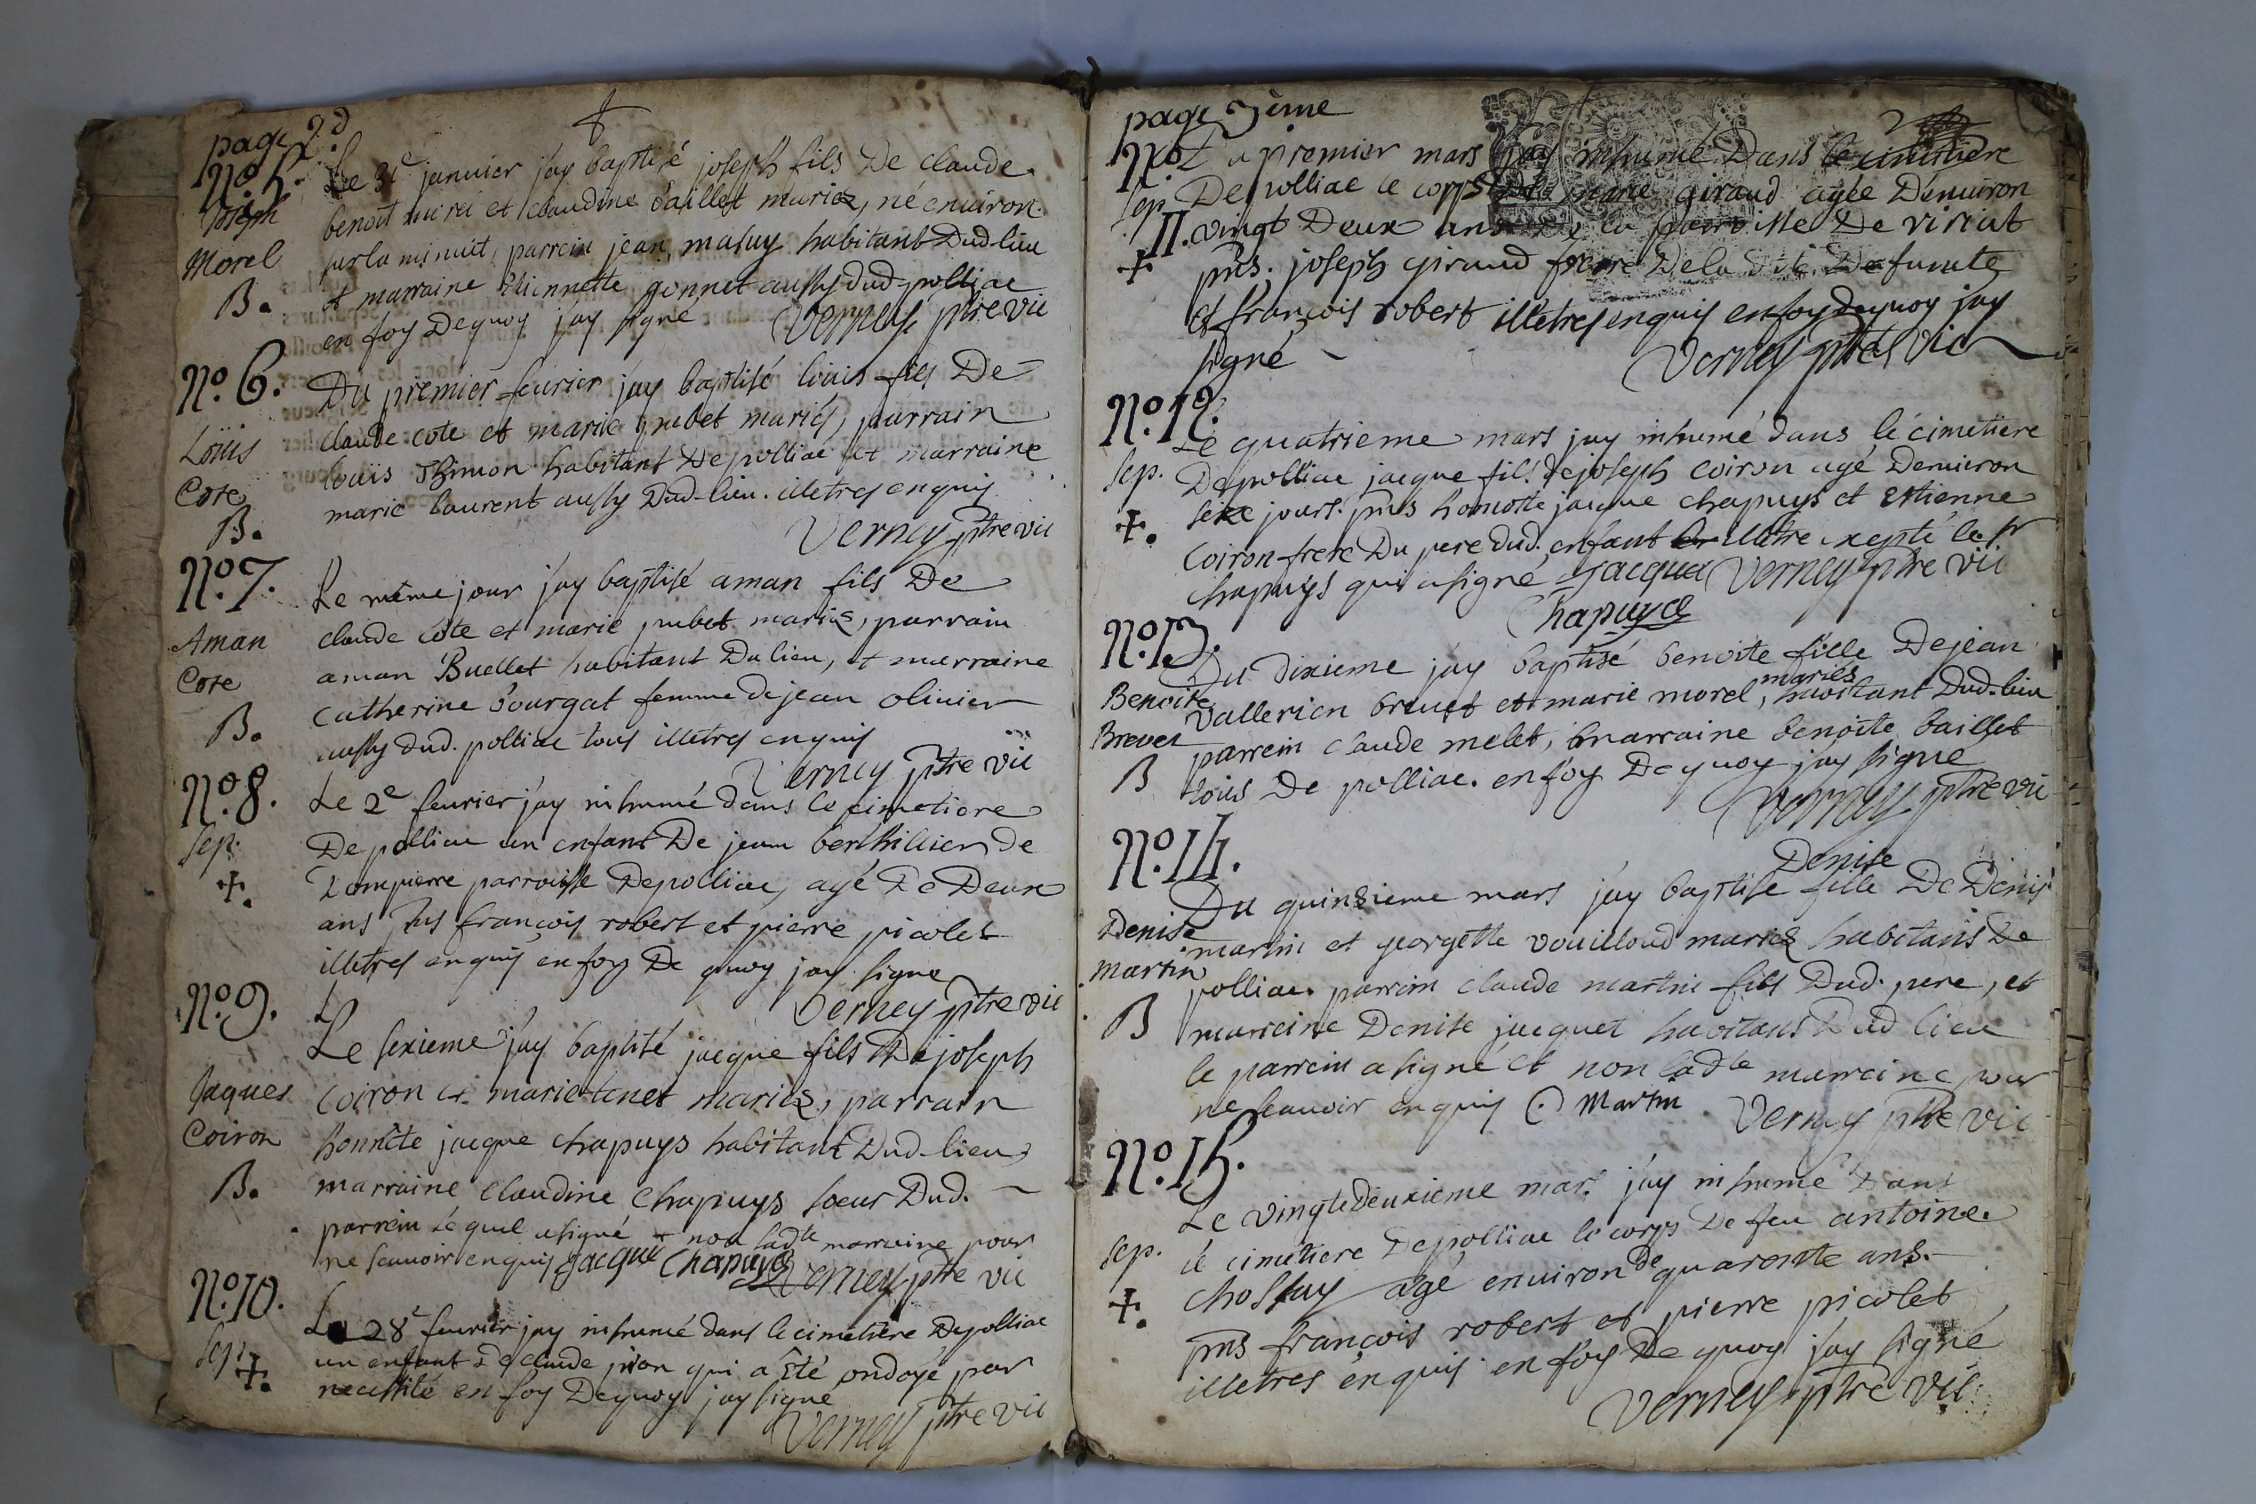 page 2.d
N.o 5.
Joseph
Morel
B.
Le 31e janvier jay baptisé joseph fils De claude
benoit morel et claudine baillet mariez, né environ
sur la minuit, parrein jean, masuy habitant Dud-lieu
et marraine Etiennette gonnet aussy dud. polliac
en foy Dequoy jay signé Verney ptre vic
N.o 6.
Loüis
Cote
B.
Du premier fevrier jay baptisé loüis fils De
claude cote et marie pubet mariés, parrain
loüis Thimon habitant De polliac et marraine
marie laurent aussy Dud-lieu. illetres enquis
Verney ptre vic
N.o 7.
Aman
Cote
B.
Le même jour j'ay baptisé aman fils De
claude cote et marie pubet mariés, parrain
aman Buellet habitant Du lieu, et marraine
catherine bourgat femme de jean olivier
aussy dud. polliac tous illetres enquis
Verney ptre vic
N.o 8.
Sep.
+.
Le 2e fevrier j'ay inhumé dans le cimetiere
De polliac un enfant De jean berthillier de
Dompierre parroisse De polliac, agé De Deux
ans françois robert et pierre picolet
illetres enquis en foy De quoy jay signe
Verney ptre vic
N.o 9.
Jaques
Coiron
B.
Le sixieme j'ay baptisé jacque fils De joseph
Coiron et marie tenet mariez, parrain
honnête jacque chapuys habitant Dud-lieu
marraine Claudine Chapuys soeur Dud.
parrein lequel a signé et non ladte marraine pour
ne scavoir enquis Jacque Chapuys Verney ptre vic
N.o 10.
Sep.
+.
Le 28e fevrier jay inhumé dans le cimetiere De polliac
un enfant De claude pion qui a été ondoyé par
necessité en foy Dequoy jay signe
Verney ptre vic
page 3ème
N.o
Sep.
II.
+.
Du premier mars jay inhumé Dans le cimitiere
De polliac le corps De marie giraud agée D'environ
vingt Deux ans De la parroisse De viriat
pns. joseph giraud frere De la dite Defunte
et françois robert illetres enquis en foy de quoy jay
signé Verney ptre vic
N.o 12.
Sep.
+.
Le quatrieme mars jay inhumé dans le cimetiere
De polliac jacque fils de joseph coiron agé Denviron
seze jours. pns honnete jacque chapuys et Etienne
Coiron frere Du pere dud. enfant illetre exepté le sr
chapuys qui a signé Jacque Verney ptre vic
Chapuys
N.o 13.
Benoite
Brevet
B
Du dixieme jay baptisé benoite fille De jean
mariés
vallerien brevet et marie morel, habitant Dud-lieu
parrein claude melet, marraine benoite baillet
tous De polliac. en foy De quoy jay signe
Verney ptre vic
N.o 14.
Denise
martin
B
Denise
Du quinzieme mars jay baptise fille De Denis
martin et georgette vouilloud mariez habitans De
polliac. parrein claude martin fils Dud. pere, et
marreine Denise jacquet habitans Dud lieu
le parrein a signé et non ladte marreine pour
ne scauoir enquis C. Martin. Verney ptre vic
N.o 15.
Sep.
+.
Le vingt-deuxieme mars j'ay inhumé Dans
le cimetiere De polliac le corps De feu antoine
chossuy agé environ de quarente ans.
pns françois robert et pierre picolet
illetres enquis en foy De quoy jay signé
Verney ptre vic